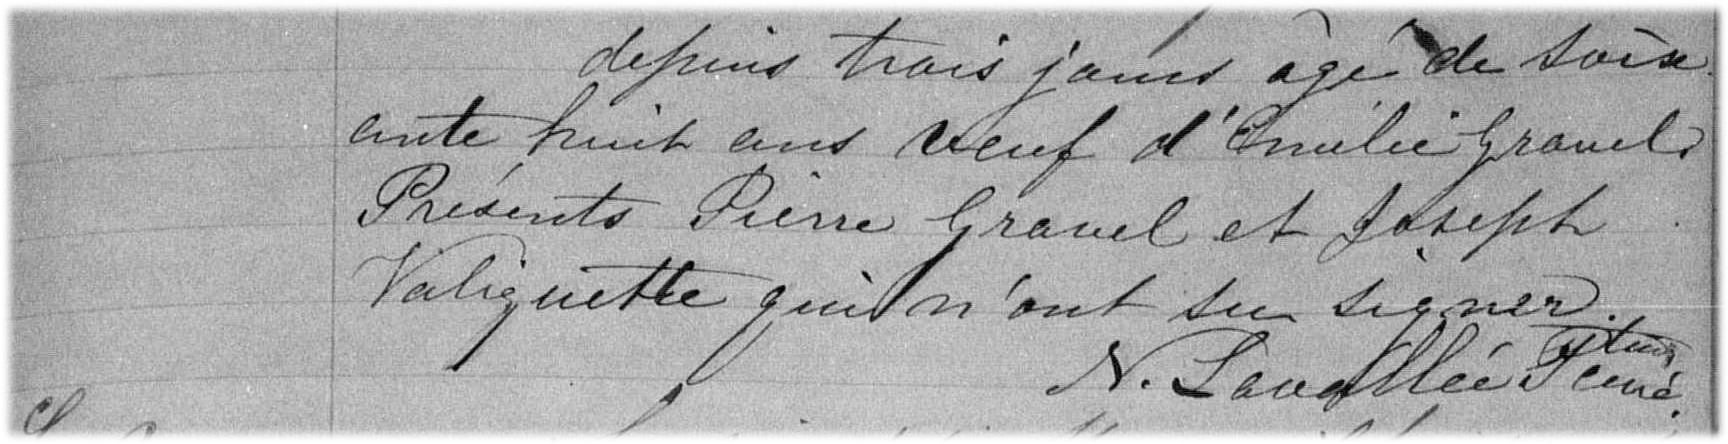 depuis trois jours âgé de soix
ante huit ans veuf d'Emélie Gravel.
Présents Pierre Gravel et Joseph
Valiquette qui n'ont su signer.
N. Lavallée Ptre
curé.